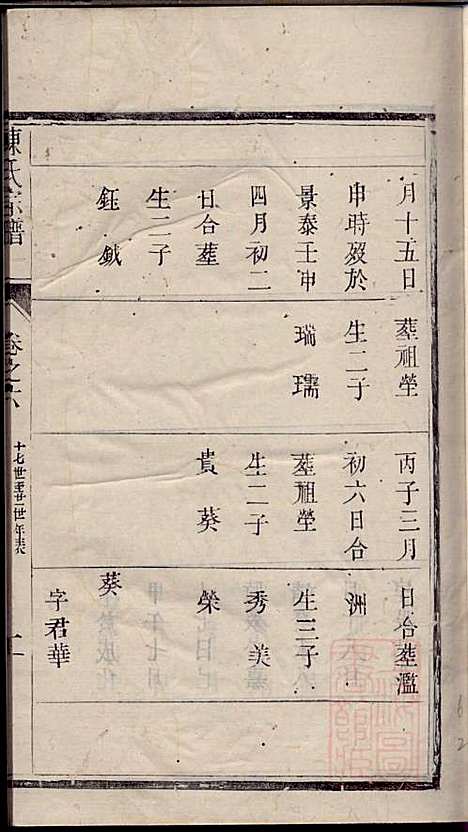 月十五日
申時歿於
景泰壬申
四月初二
日合塟
生二子
鈺 鉞
塟祖塋
生二子
瑞 瓀
丙子三月
初六日合
塟祖塋
生二子
貴 葵
日合塟濫
洲
生三子
秀 美
榮
葵
字君華
陳氏宗譜
卷之六
十七世至廿世年表